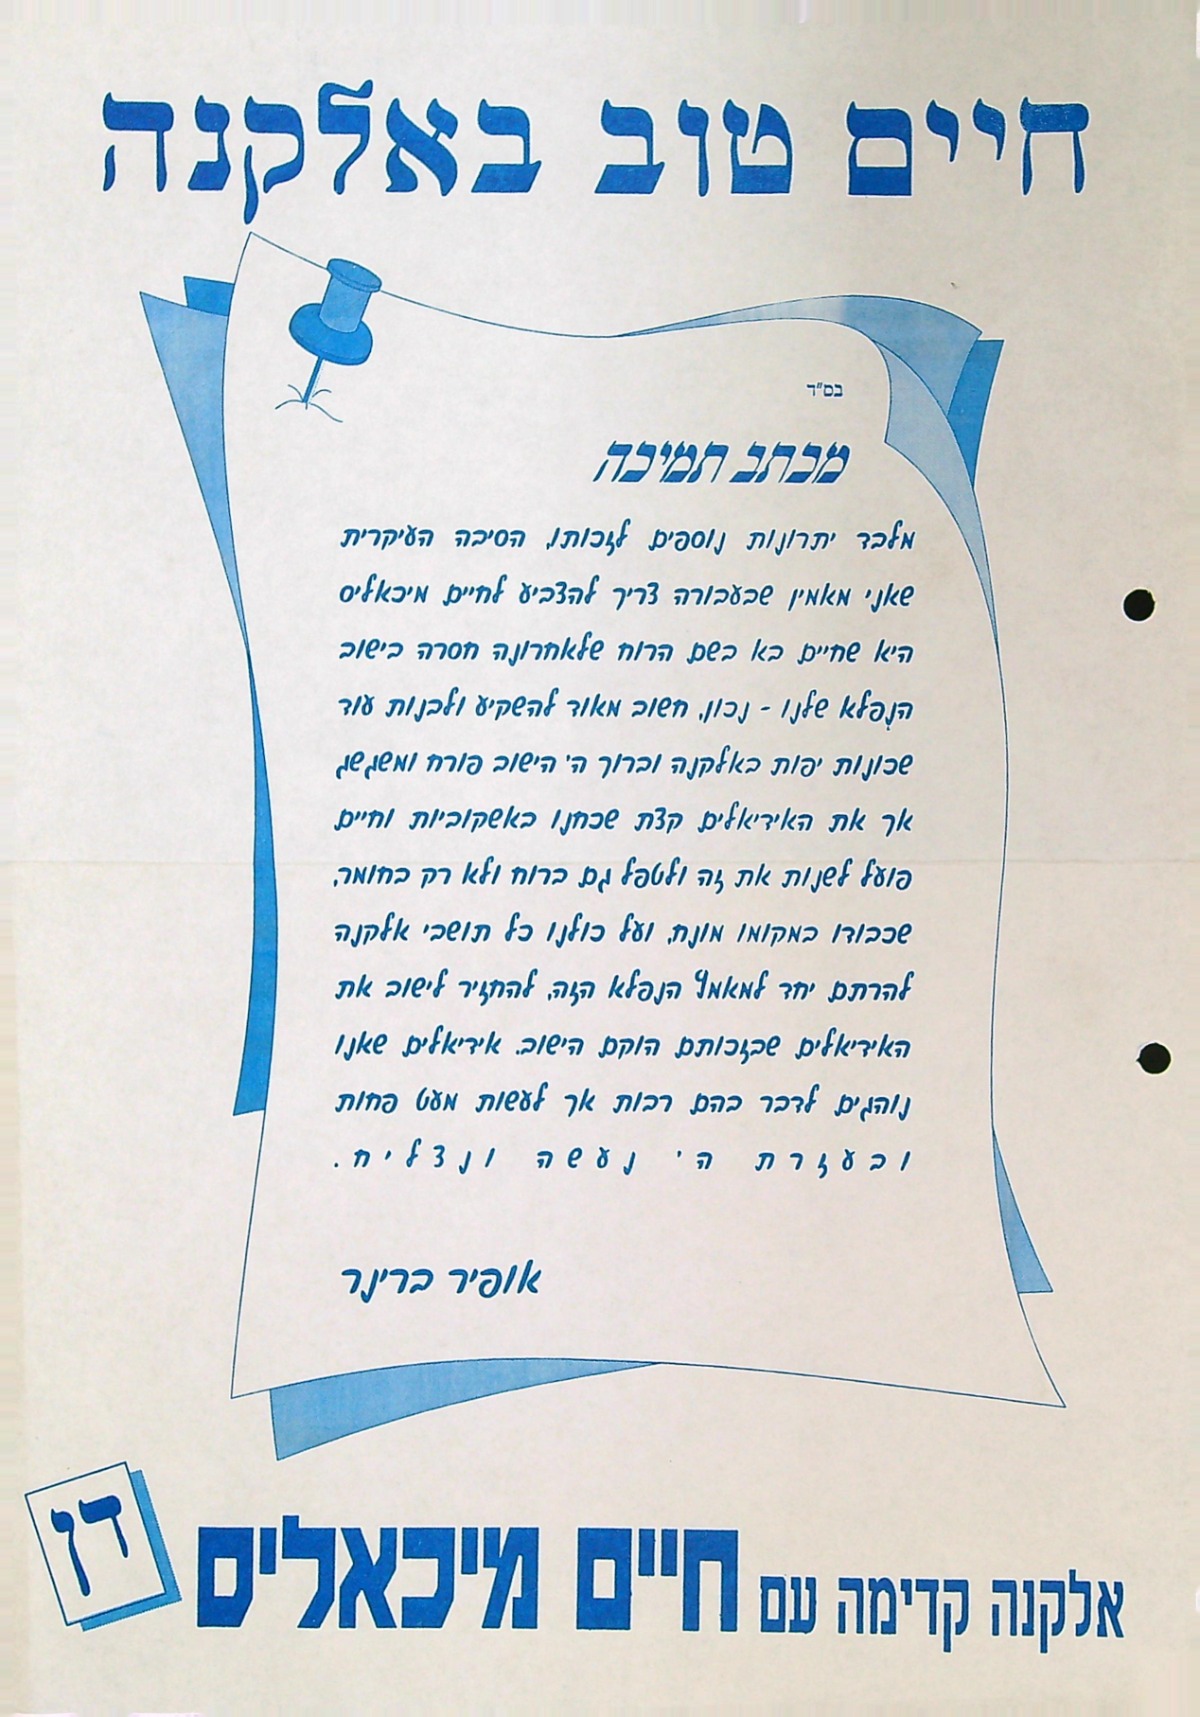 חיים טוב באלקנה
בס"ד
מכתב תמיכה
מלבד יתרונות נוספים לזכותו, הסיבה העיקרית
שאני מאמין שבעבורה צריך להצביע לחיים מיכאליס
היא שחיים בא בשם הרוח שלאחרונה חסרה בישוב
הנפלא שלנו - נכון, חשוב מאוד להשקיע ולבנות עוד
שכונות יפות באלקנה וברוך ה' הישוב פורח ומשגשג
אך את האידיאלים קצת שכחנו באשקוביות וחיים
פועל לשנות את זה ולטפל גם ברוח ולא רק בחומר,
שכבודו במקומו מונח, ועל כולנו כל תושבי אלקנה
להרתם יחד למאמץ הנפלא הזה, להחזיר לישוב את
האידיאלים שבזכותם הוקם הישוב. אידיאלים שאנו
נוהגים לדבר בהם רבות אך לעשות מעט פחות
ובעזרת ה' נעשה ונצליח.
אופיר ברינר
אלקנה קדימה עם חיים מיכאליס דן